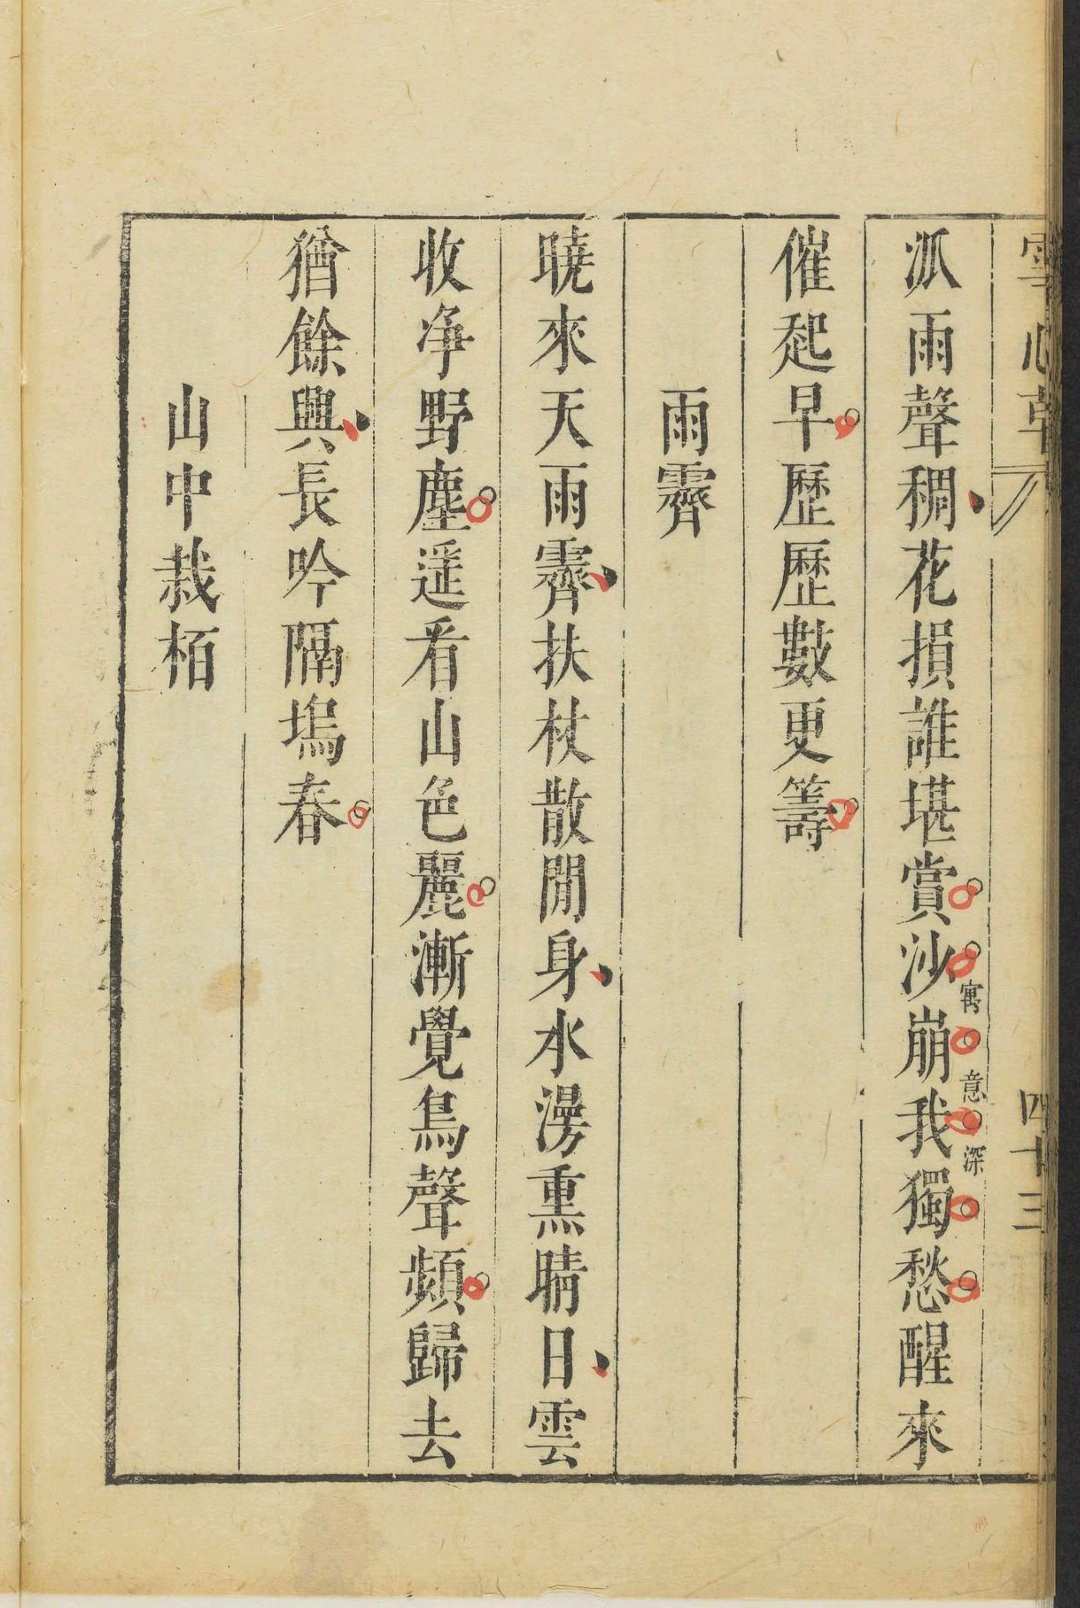 雪心草
四十三
派雨聲稠花損誰堪賞沙崩我獨愁醒來
寓意深
催起早歷歷數更籌
雨霽
曉來天雨霽扶杖散閒身水漫熏晴日雲
收净野塵遥看山色麗漸覺鳥聲頻歸去
猶餘興長吟隔塢春
山中栽栢